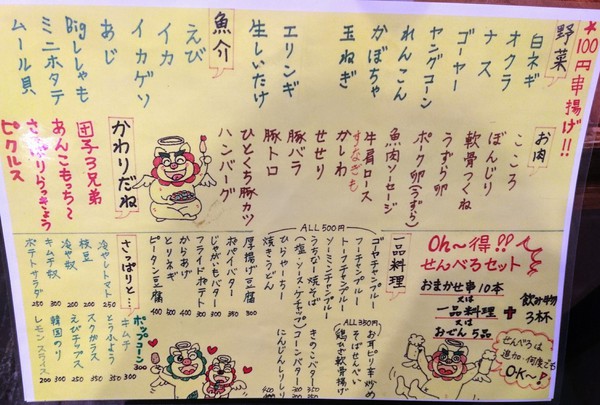 *100円串揚げ!!
野菜
白ネギ
オクラ
ナス
ゴーヤー
ヤングコーン
れんこん
かぼちゃ
玉ねぎ
エリンギ
生しいたけ
魚介
えび
イカ
イカゲソ
あじ
Bigししゃも
ミニホタテ
ムール貝
お肉
こころ
ぼんじり
軟骨つくね
うずら卵
ポーク卵(うずら)
魚肉ソーセージ
牛肩ロース
うなぎも
かしわ
せせり
豚バラ
豚トロ
ひとくち豚カツ
ハンバーグ
かわりだね
団子3兄弟
あんこもっち〜
さっぱりらっきょう
ピクルス
Oh〜得!!
せんべろセット
おまかせ串10本
又は
一品料理
又は
おでん5品
+
飲み物
3杯
せんべろは
追加何度でも
OK〜!
一品料理
ALL500円
ゴーヤチャンプルー
フーチャンプルー
トーフチャンプルー
ソーミンチャンプルー
うちなー焼そば
(塩・ソース・ケチャップ)
ひらやーちー
焼きうどん
ALL380円
お耳ピリ辛炒め
そばせんべい
鶏ひざ軟骨揚げ
きのこバター 350
コーンバター 300
にんじんしりしり 400
厚揚げ豆腐 300
じゃがバター 300
フライドポテト 300
からあげ
とりネギ
ピータン豆腐 400
さっぱりと…
冷やしトマト 250
枝豆 200
冷や奴 200
キムチ奴 300
ポテトサラダ 250
キムチ 300
とう小ょう 350
スクガラス 350
えびチップス 200
韓国のり 300
レモンスライス 200
ポップコーン 300